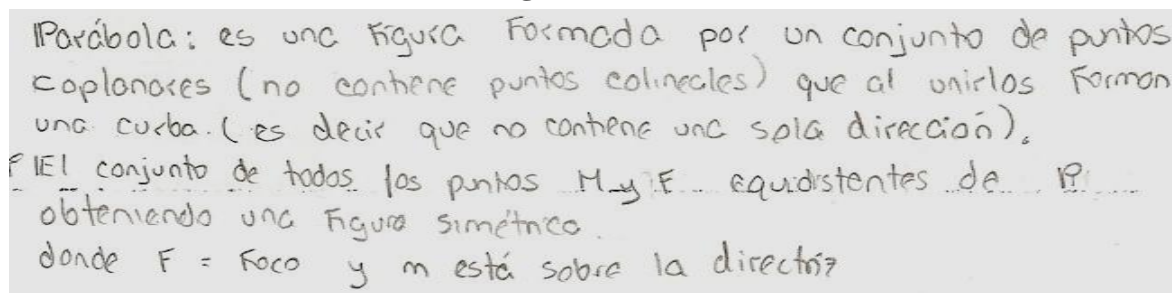 Parábola: es una Figura Formada por un conjunto de puntos
coplanares (no contiene puntos colineales) que al unirlos Forman
una curba. (es decir que no contiene una sola dirección).
El conjunto de todos los puntos M y F equidistentes de P
obteniendo una Figura simétrica.
donde F = Foco y m está sobre la directriz